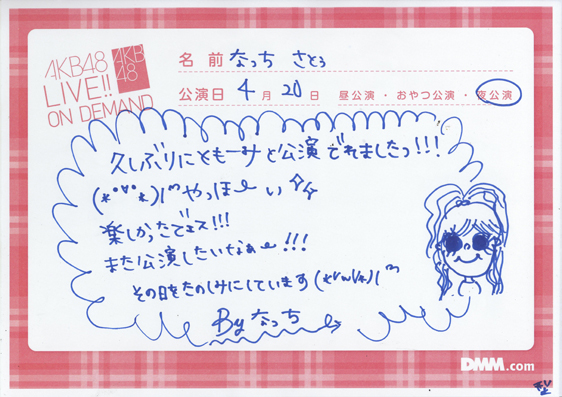 AKB48
LIVE!!
ON DEMAND
AKB
48
名前 なっち さとう
公演日 4月20日 昼公演・おやつ公演・夜公演
久しぶりにともーサと公演でれましたっ!!!
やっほーい
楽しかったでェス!!!
また公演したいなぁー!!!
その日をたのしみにしています
By なっち
DMM.com